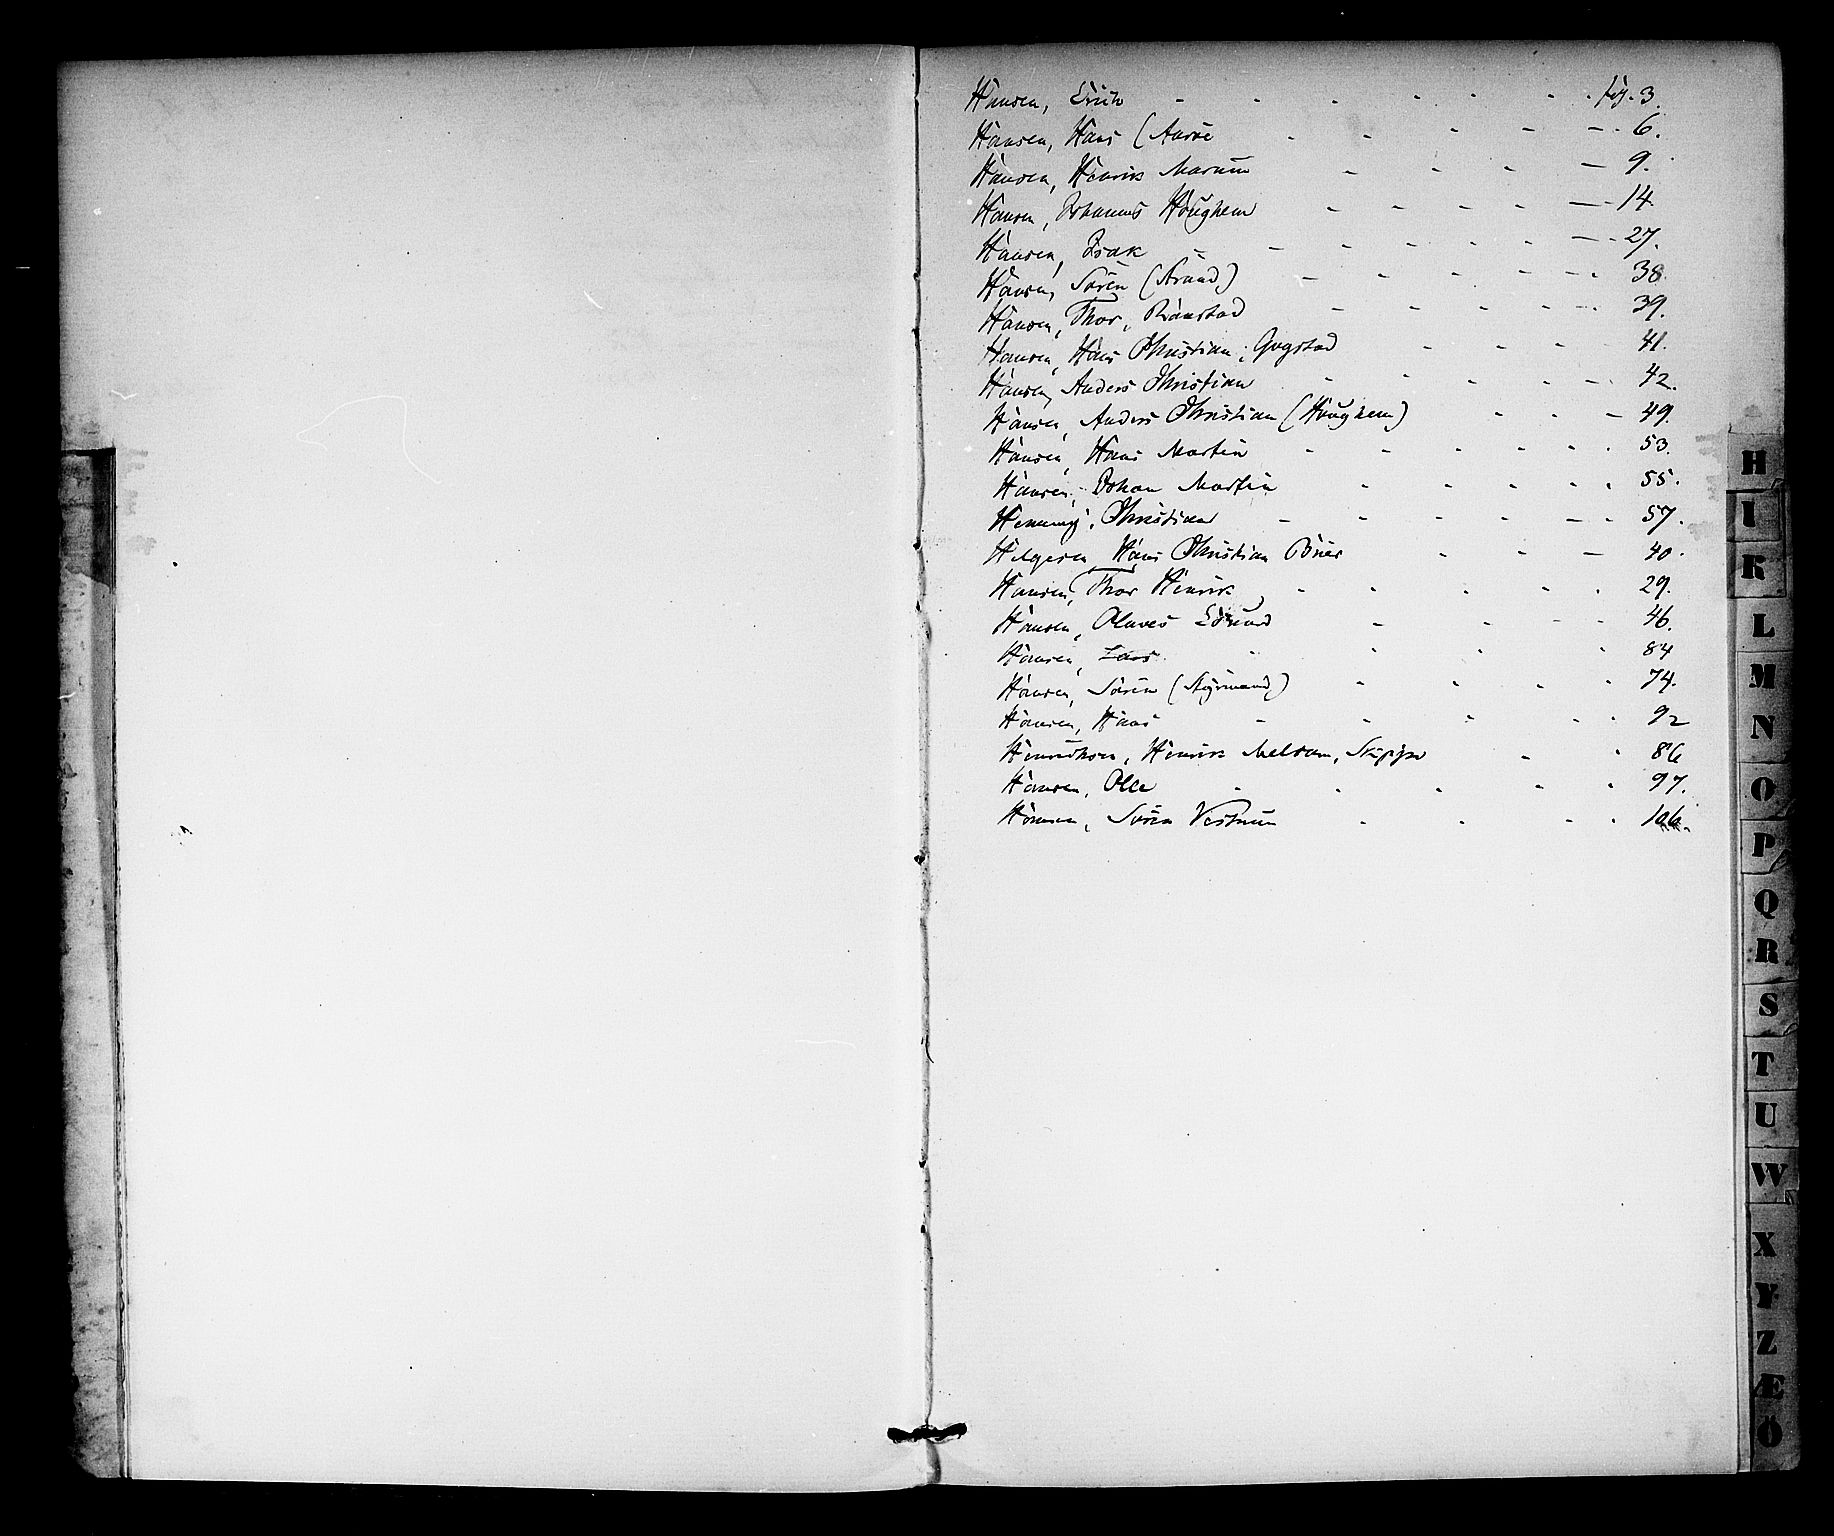 Hansen, Erich - - - - - - - fig. 3.
Hansen, Hans (Aarøe - - - - - 6.
Hansen, Henrik Marum - - - - 9.
Hansen, Johannes Haughem - - - - - 14
Hansen, Isak - - - - - - - 27.
Hansen, Sören (Strand) - - - - - 38
Hansen, Thor, Ranstad - - - - - 39.
Hansen, Hans Christian, Gogstad - - - - 41.
Hansen, Anders Christian - - - - - 42.
Hansen, Anders Christian (Haughem) - - - 49.
Hansen, Hans Martin - - - - - 53.
Hansen, Johan Martin - - - - - 55.
Henning, Christian - - - - - - 57.
Helgesen, Hans Christian - - - 40.
Hansen, Thor Henrik - - - - - 29.
Hansen, Olaves Edvard - - - - 46.
Hansen, Lars - - - - 84
Hansen, Sören (Styrmand) - - - - 74.
Hansen, Hans - - - - - 92
Henriksen, Henrik Melsom, Skipper - - 86
Hansen, Olle - - - - - 97.
Hansen, Sören Vestrum - - - - 106.
H
I
K
L
M
N
O
P
Q
R
S
T
U
W
X
Y
Z
Æ
Ö